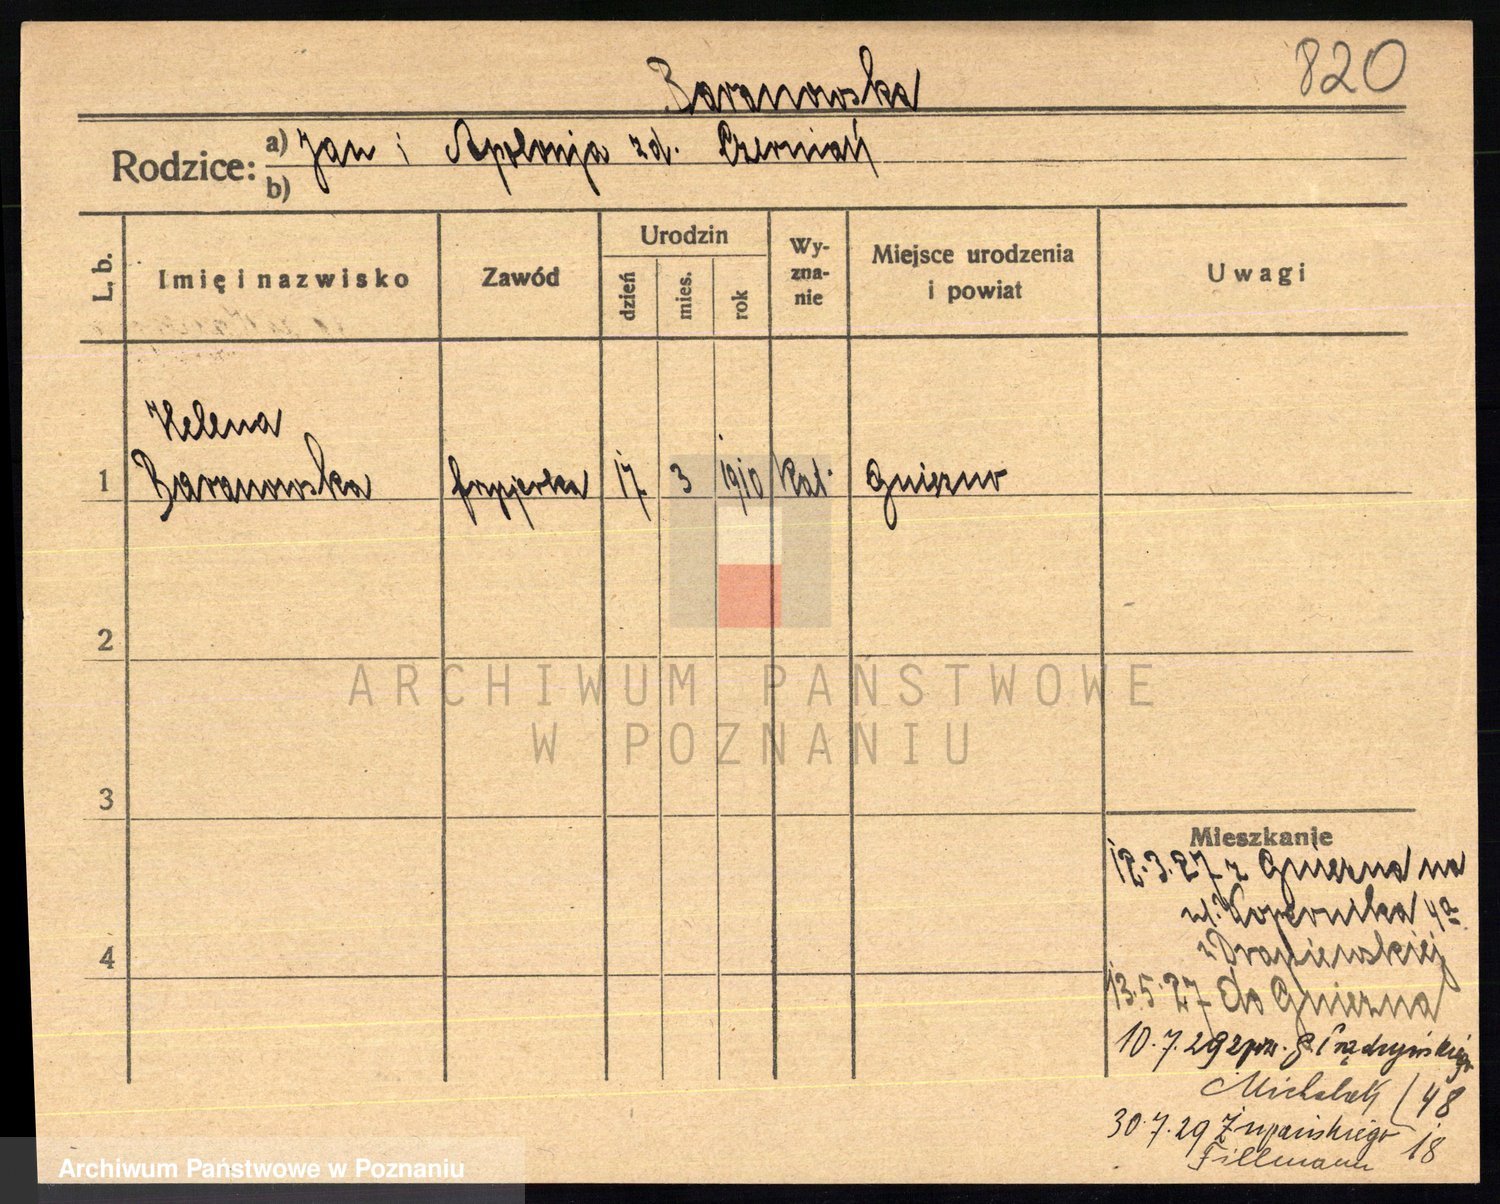 820
Baranowska
Rodzice: a) Jan i Apolonja zd. Czerniak
b)
L. b.
Imię i nazwisko
Zawód
Urodzin
dzień
mies.
rok
Wy-
zna-
nie
Miejsce urodzenia
i powiat
Uwagi
Helena
1 Baranowska fryzjerka 17 3 1910 Kat. Gniezno
2
ARCHIWUM PAŃSTWOWE
W POZNANIU
3
4
Mieszkanie
12.3.27 z Gniezna na
ul. Kopernika 4a
13.5.27 do Gniezna
10.7.29 z pow.
Michalak 48
30.7.29 Żupańskiego 18
Fillmann
Archiwum Państwowe w Poznaniu